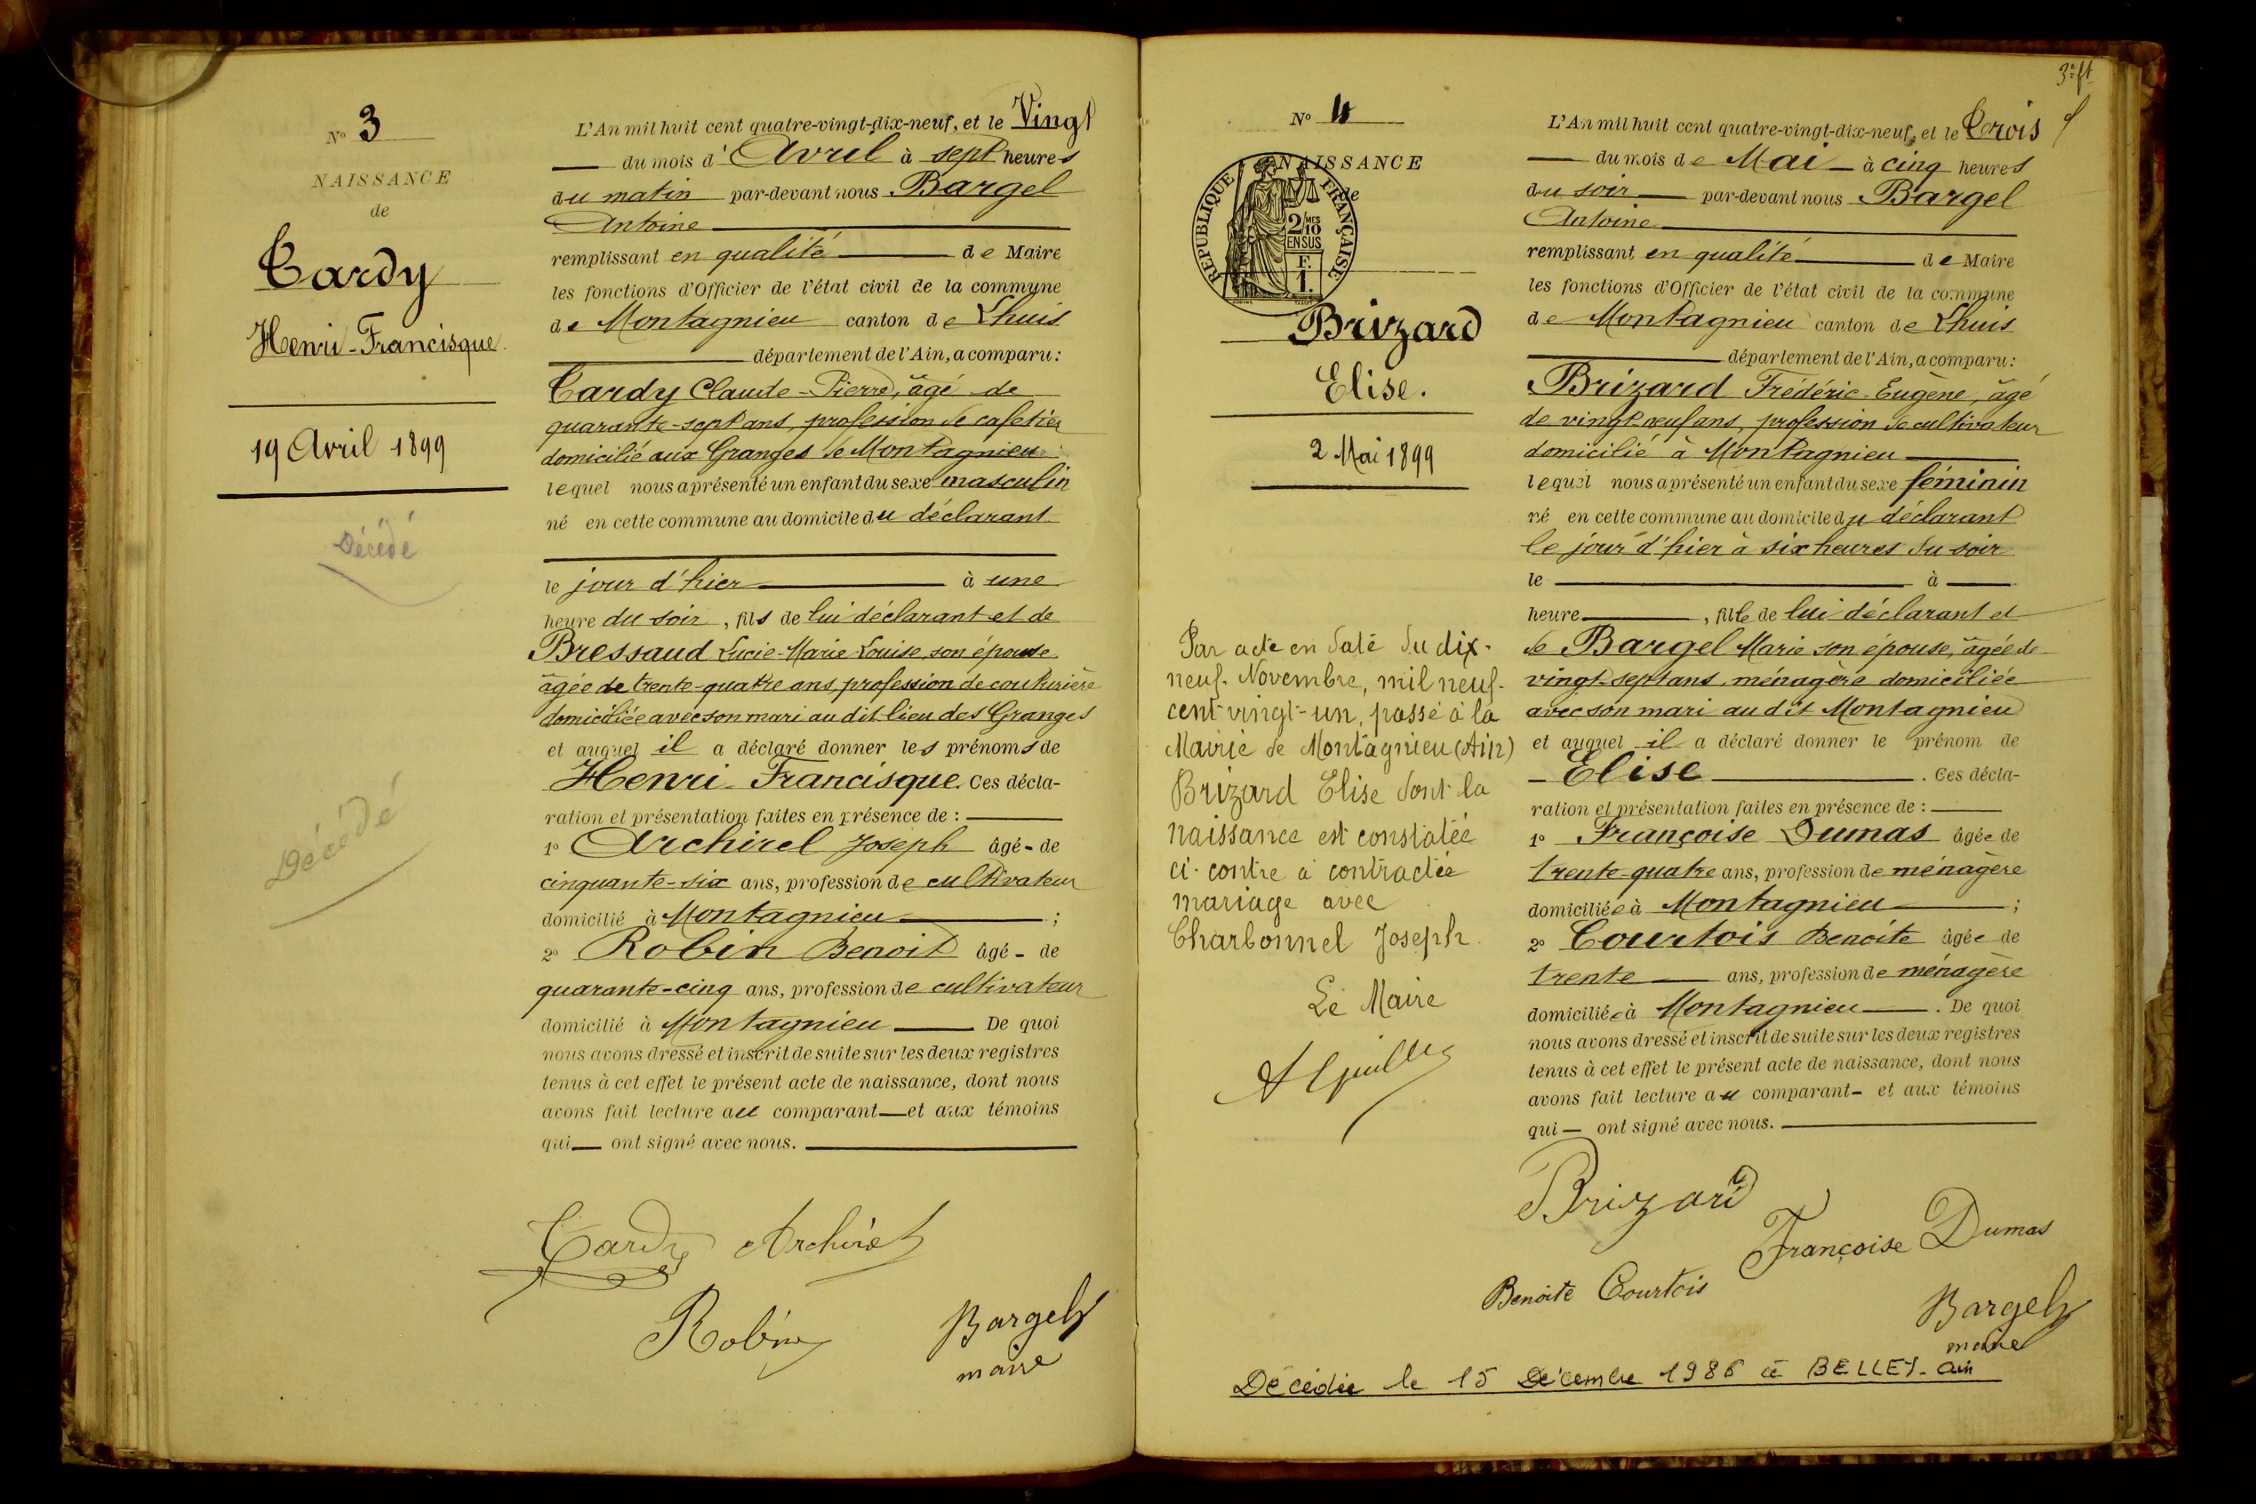 N° 3
NAISSANCE
de
Tardy
Henri-Francisque
19 Avril 1899
Décédé
Décédé
L'An mil huit cent quatre-vingt-dix-neuf, et le Vingt
du mois d'Avril à sept heures
du matin par-devant nous Bargel
Antoine
remplissant en qualité de Maire
les fonctions d'Officier de l'état civil de la commune
de Montagnieu canton de Lhuis
département de l'Ain, a comparu :
Tardy Claude-Pierre, âgé de
quarante-sept ans, profession de cafetier
domicilié aux Granges de Montagnieu
lequel nous a présenté un enfant du sexe masculin
né en cette commune au domicile du déclarant
le jour d'hier à une
heure du soir, fils de lui déclarant et de
Bressaud Lucie-Marie-Louise, son épouse
âgée de trente-quatre ans, profession de couturière
domiciliée avec son mari au dit lieu des Granges
et auquel il a déclaré donner les prénoms de
Henri-Francisque. Ces décla-
ration et présentation faites en présence de :
1° Archirel Joseph âgé - de
cinquante-six ans, profession de cultivateur
domicilié à Montagnieu ;
2° Robin Benoit âgé - de
quarante-cinq ans, profession de cultivateur
domicilié à Montagnieu De quoi
nous avons dressé et inscrit de suite sur les deux registres
tenus à cet effet le présent acte de naissance, dont nous
avons fait lecture au comparant — et aux témoins
qui — ont signé avec nous.
Tardy Archirel
Robin Bargel
maire
3e ft
N° 4
NAISSANCE
de
REPUBLIQUE FRANÇAISE
2/10 MES
EN SUS
F.
1.
Brizard
Elise.
2 Mai 1899
Par acte en date du dix-
neuf Novembre, mil neuf-
cent vingt-un, passé à la
Mairie de Montagnieu (Ain)
Brizard Elise dont la
naissance est constatée
ci-contre à contractée
mariage avec
Charbonnel Joseph.
Le Maire
L'An mil huit cent quatre-vingt-dix-neuf, et le Trois
du mois de Mai à cinq heures
du soir par-devant nous Bargel
Antoine
remplissant en qualité de Maire
les fonctions d'Officier de l'état civil de la commune
de Montagnieu canton de Lhuis
département de l'Ain, a comparu :
Brizard Frédéric-Eugène, âgé
de vingt neuf ans, profession de cultivateur
domicilié à Montagnieu
lequel nous a présenté un enfant du sexe féminin
né en cette commune au domicile du déclarant
le jour d'hier à six heures du soir
le à
heure , fille de lui déclarant et
de Bargel Marie son épouse, âgée de
vingt-sept ans, ménagère domiciliée
avec son mari au dit Montagnieu
et auquel il a déclaré donner le prénom de
Elise . Ces décla-
ration et présentation faites en présence de :
1° Françoise Dumas âgée de
trente-quatre ans, profession de ménagère
domiciliée à Montagnieu ;
2° Courtois Benoite âgée de
trente ans, profession de ménagère
domiciliée à Montagnieu . De quoi
nous avons dressé et inscrit de suite sur les deux registres
tenus à cet effet le présent acte de naissance, dont nous
avons fait lecture au comparant - et aux témoins
qui — ont signé avec nous.
Brizard
Françoise Dumas
Benoite Courtois
Bargel
maire
Décédée le 15 Décembre 1986 à BELLEY - Ain